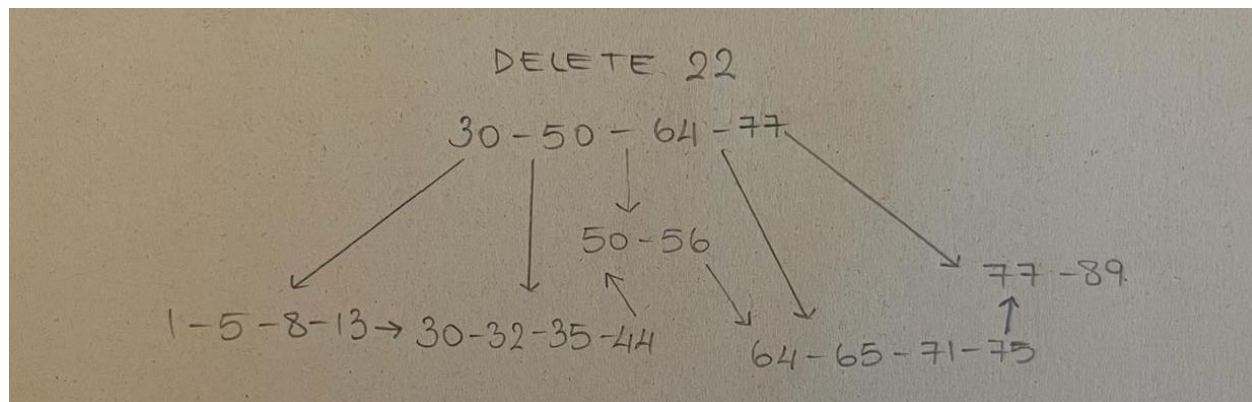 DELETE 22
30-50-64-77
50-56
77-89
1-5-8-13→30-32-35-44
64-65-71-75